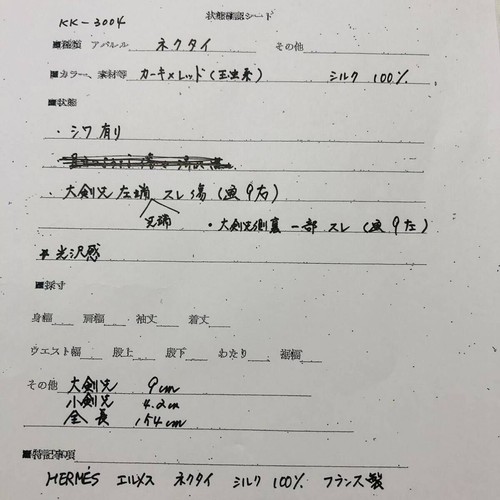 KK-3004
状態確認シート
■種類 アパレル ネクタイ その他
■カラー、素材等 カーキ×レッド(玉虫系) シルク 100%
■状態
・シワ有り
・大剣先左端 スレ傷(画9右)
先端 ・大剣先側裏 一部スレ(画9左)
* 光沢感
■採寸
身幅 肩幅 袖丈 着丈
ウエスト幅 股上 股下 わたり 裾幅
その他 大剣先 9cm
小剣先 4.2cm
全長 154cm
■特記事項
HERMÈS エルメス ネクタイ シルク 100% フランス製